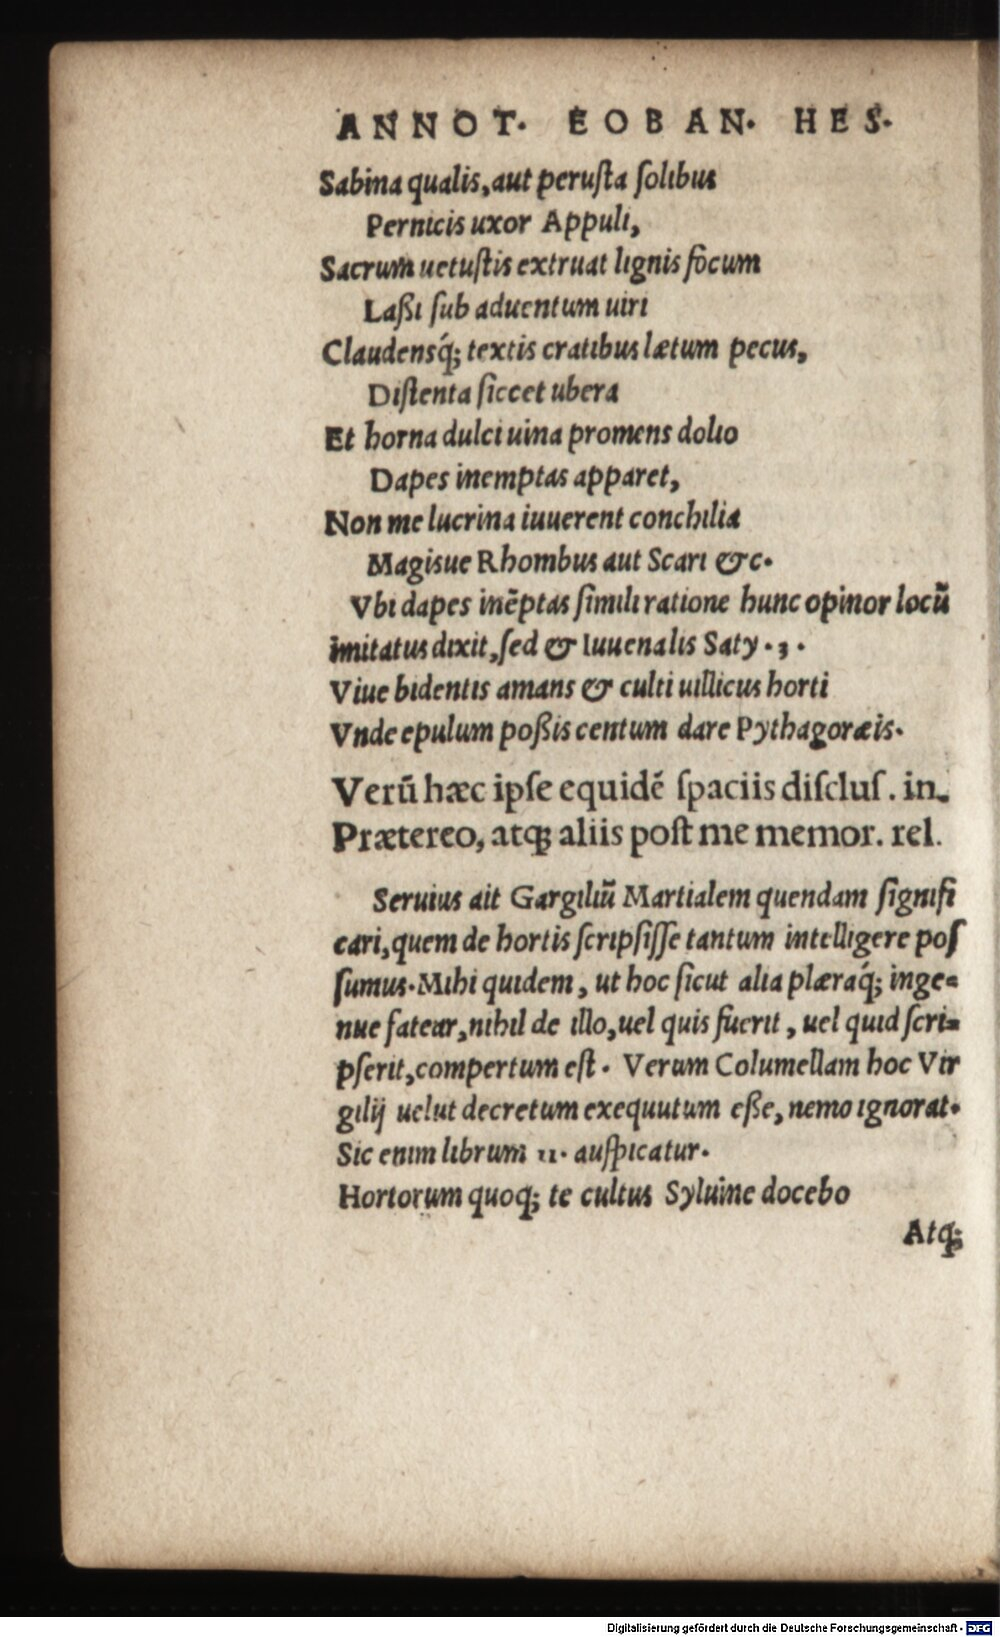 ANNOT. EOBAN. HES.
Sabina qualis, aut perusta solibus
Pernicis uxor Appuli,
Sacrum uetustis extruat lignis focum
Laßi sub aduentum uiri
Claudensq́; textis cratibus lætum pecus,
Distenta siccet ubera
Et horna dulci uina promens dolio
Dapes inemptas apparet,
Non me lucrina iuuerent conchilia
Magisue Rhombus aut Scari &c.
Vbi dapes inẽptas simili ratione hunc opinor locũ
imitatus dixit, sed & Iuuenalis Saty. 3.
Viue bidentis amans & culti uillicus horti
Vnde epulum poßis centum dare Pythagoræis.
Verũ hæc ipse equidẽ spaciis disclus. in.
Prætereo, atq; aliis post me memor. rel.
Seruius ait Gargiliũ Martialem quendam signifi
cari, quem de hortis scripsisse tantum intelligere pos
sumus. Mihi quidem, ut hoc sicut alia plæraq́; inge=
nue fatear, nihil de illo, uel quis fuerit, uel quid scri=
pserit, compertum est. Verum Columellam hoc Vir
gilij uelut decretum exequutum eße, nemo ignorat.
Sic enim librum 11. auspicatur.
Hortorum quoq; te cultus Syluine docebo
Atq;
Digitalisierung gefördert durch die Deutsche Forschungsgemeinschaft - DFG